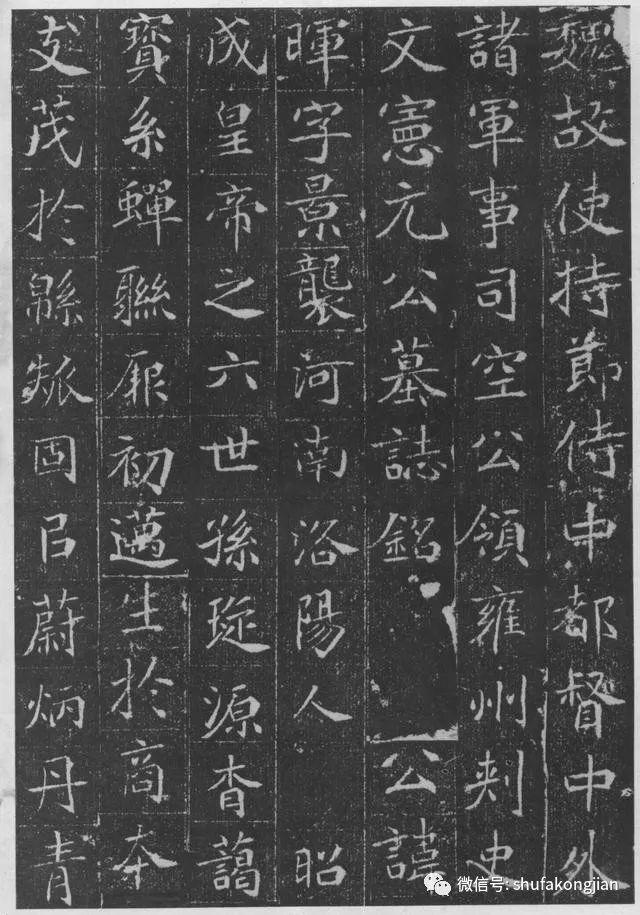 魏故使持節侍中都督中外
諸軍事司空公領雍州刾史
文憲元公墓誌銘 公諱
暉字景襲河南洛陽人 昭
成皇帝之六世孫琁源杳藹
寶系蟬聯厥初邁生於商本
支茂於緜瓞固㠯蔚炳丹青
微信号: shufakongjian